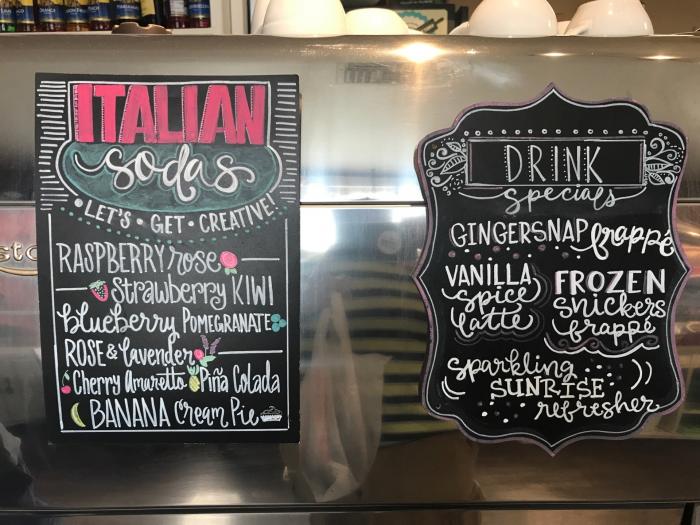 ITALIAN
sodas
• LET'S • GET • CREATIVE!
RASPBERRY rose
Strawberry KIWI
blueberry POMEGRANATE
ROSE & lavender
Cherry Amaretto Piña Colada
BANANA Cream Pie
DRINK
specials
GINGERSNAP frappé
VANILLA
spice
latte
FROZEN
snickers
frappé
sparkling
SUNRISE
refresher